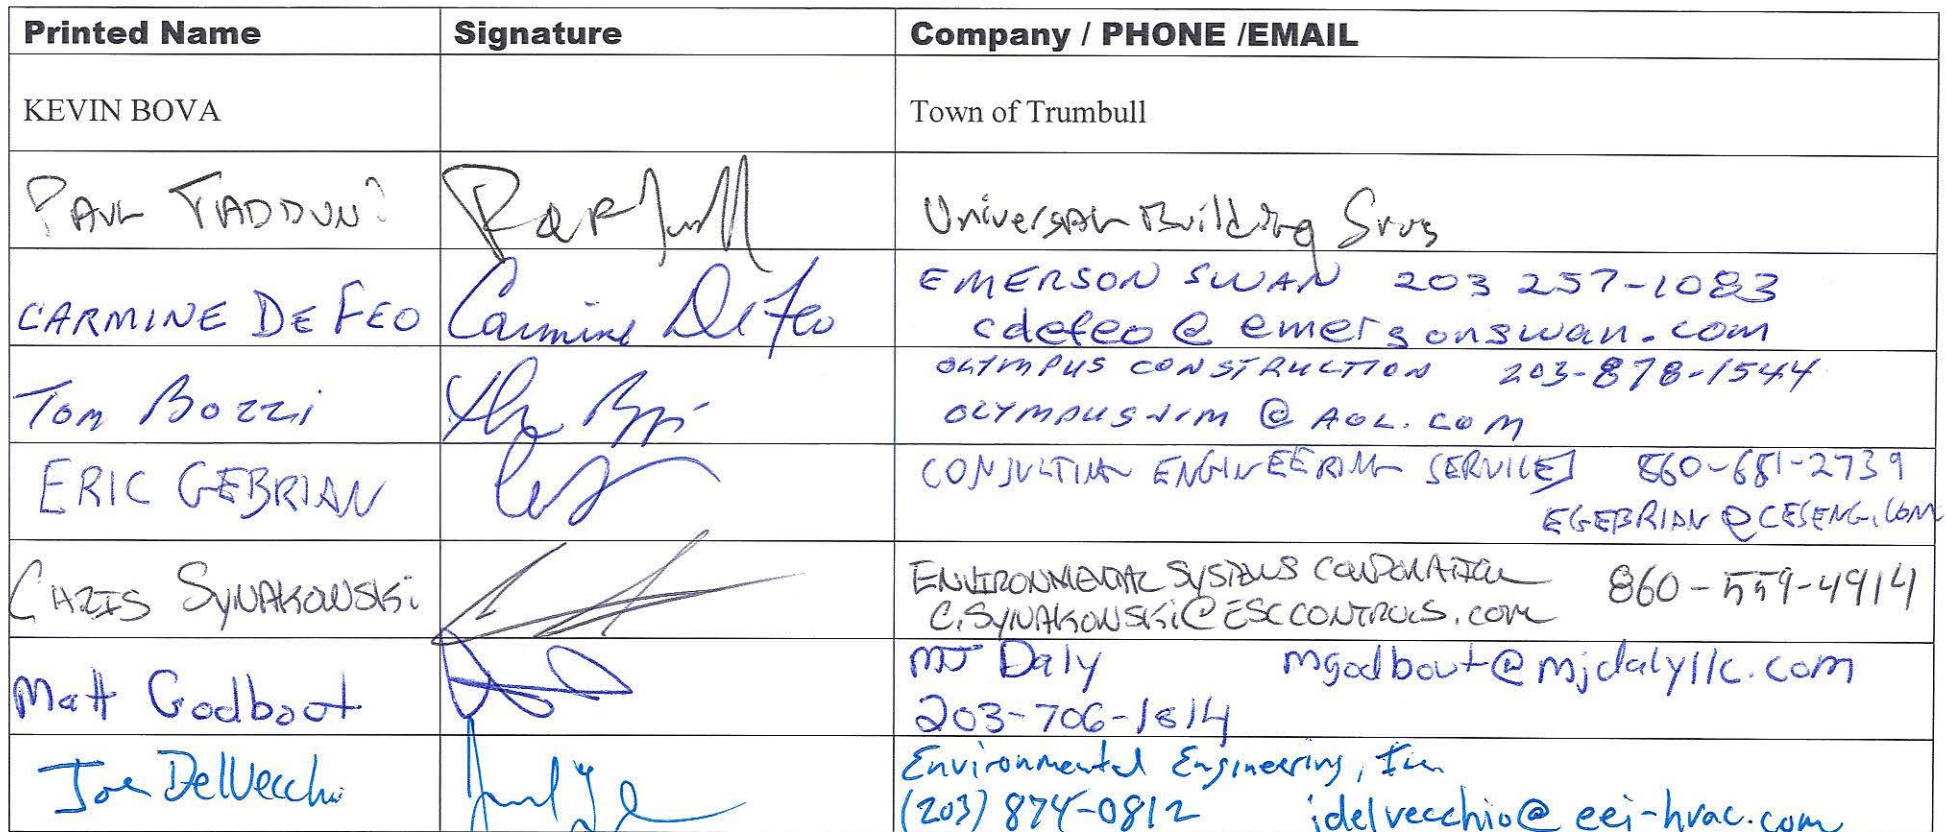 Printed Name Signature Company / PHONE /EMAIL
KEVIN BOVA Town of Trumbull
PAUL TADDUNI Universal Building Srvs
CARMINE DEFEO Carmine DeFeo EMERSON SWAN 203 257-1083
cdefeo@emersonswan.com
Tom Bozzi OLYMPUS CONSTRUCTION 203-878-1544
OLYMPUSJIM@AOL.COM
ERIC GEBRIAN CONSULTING ENGINEERING SERVICES 860-681-2739
EGEBRIAN@CESENG.COM
CHRIS SYNAKOWSKi ENVIRONMENTAL SYSTEMS CORPORATION 860-559-4914
C.SYNAKOWSKi@ESCCONTROLS.com
Matt Godbout MJ Daly mgodbout@mjdalyllc.com
203-706-1814
Joe DelVecchio Environmental Engineering, Inc
(203) 874-0812 jdelvecchio@eei-hvac.com